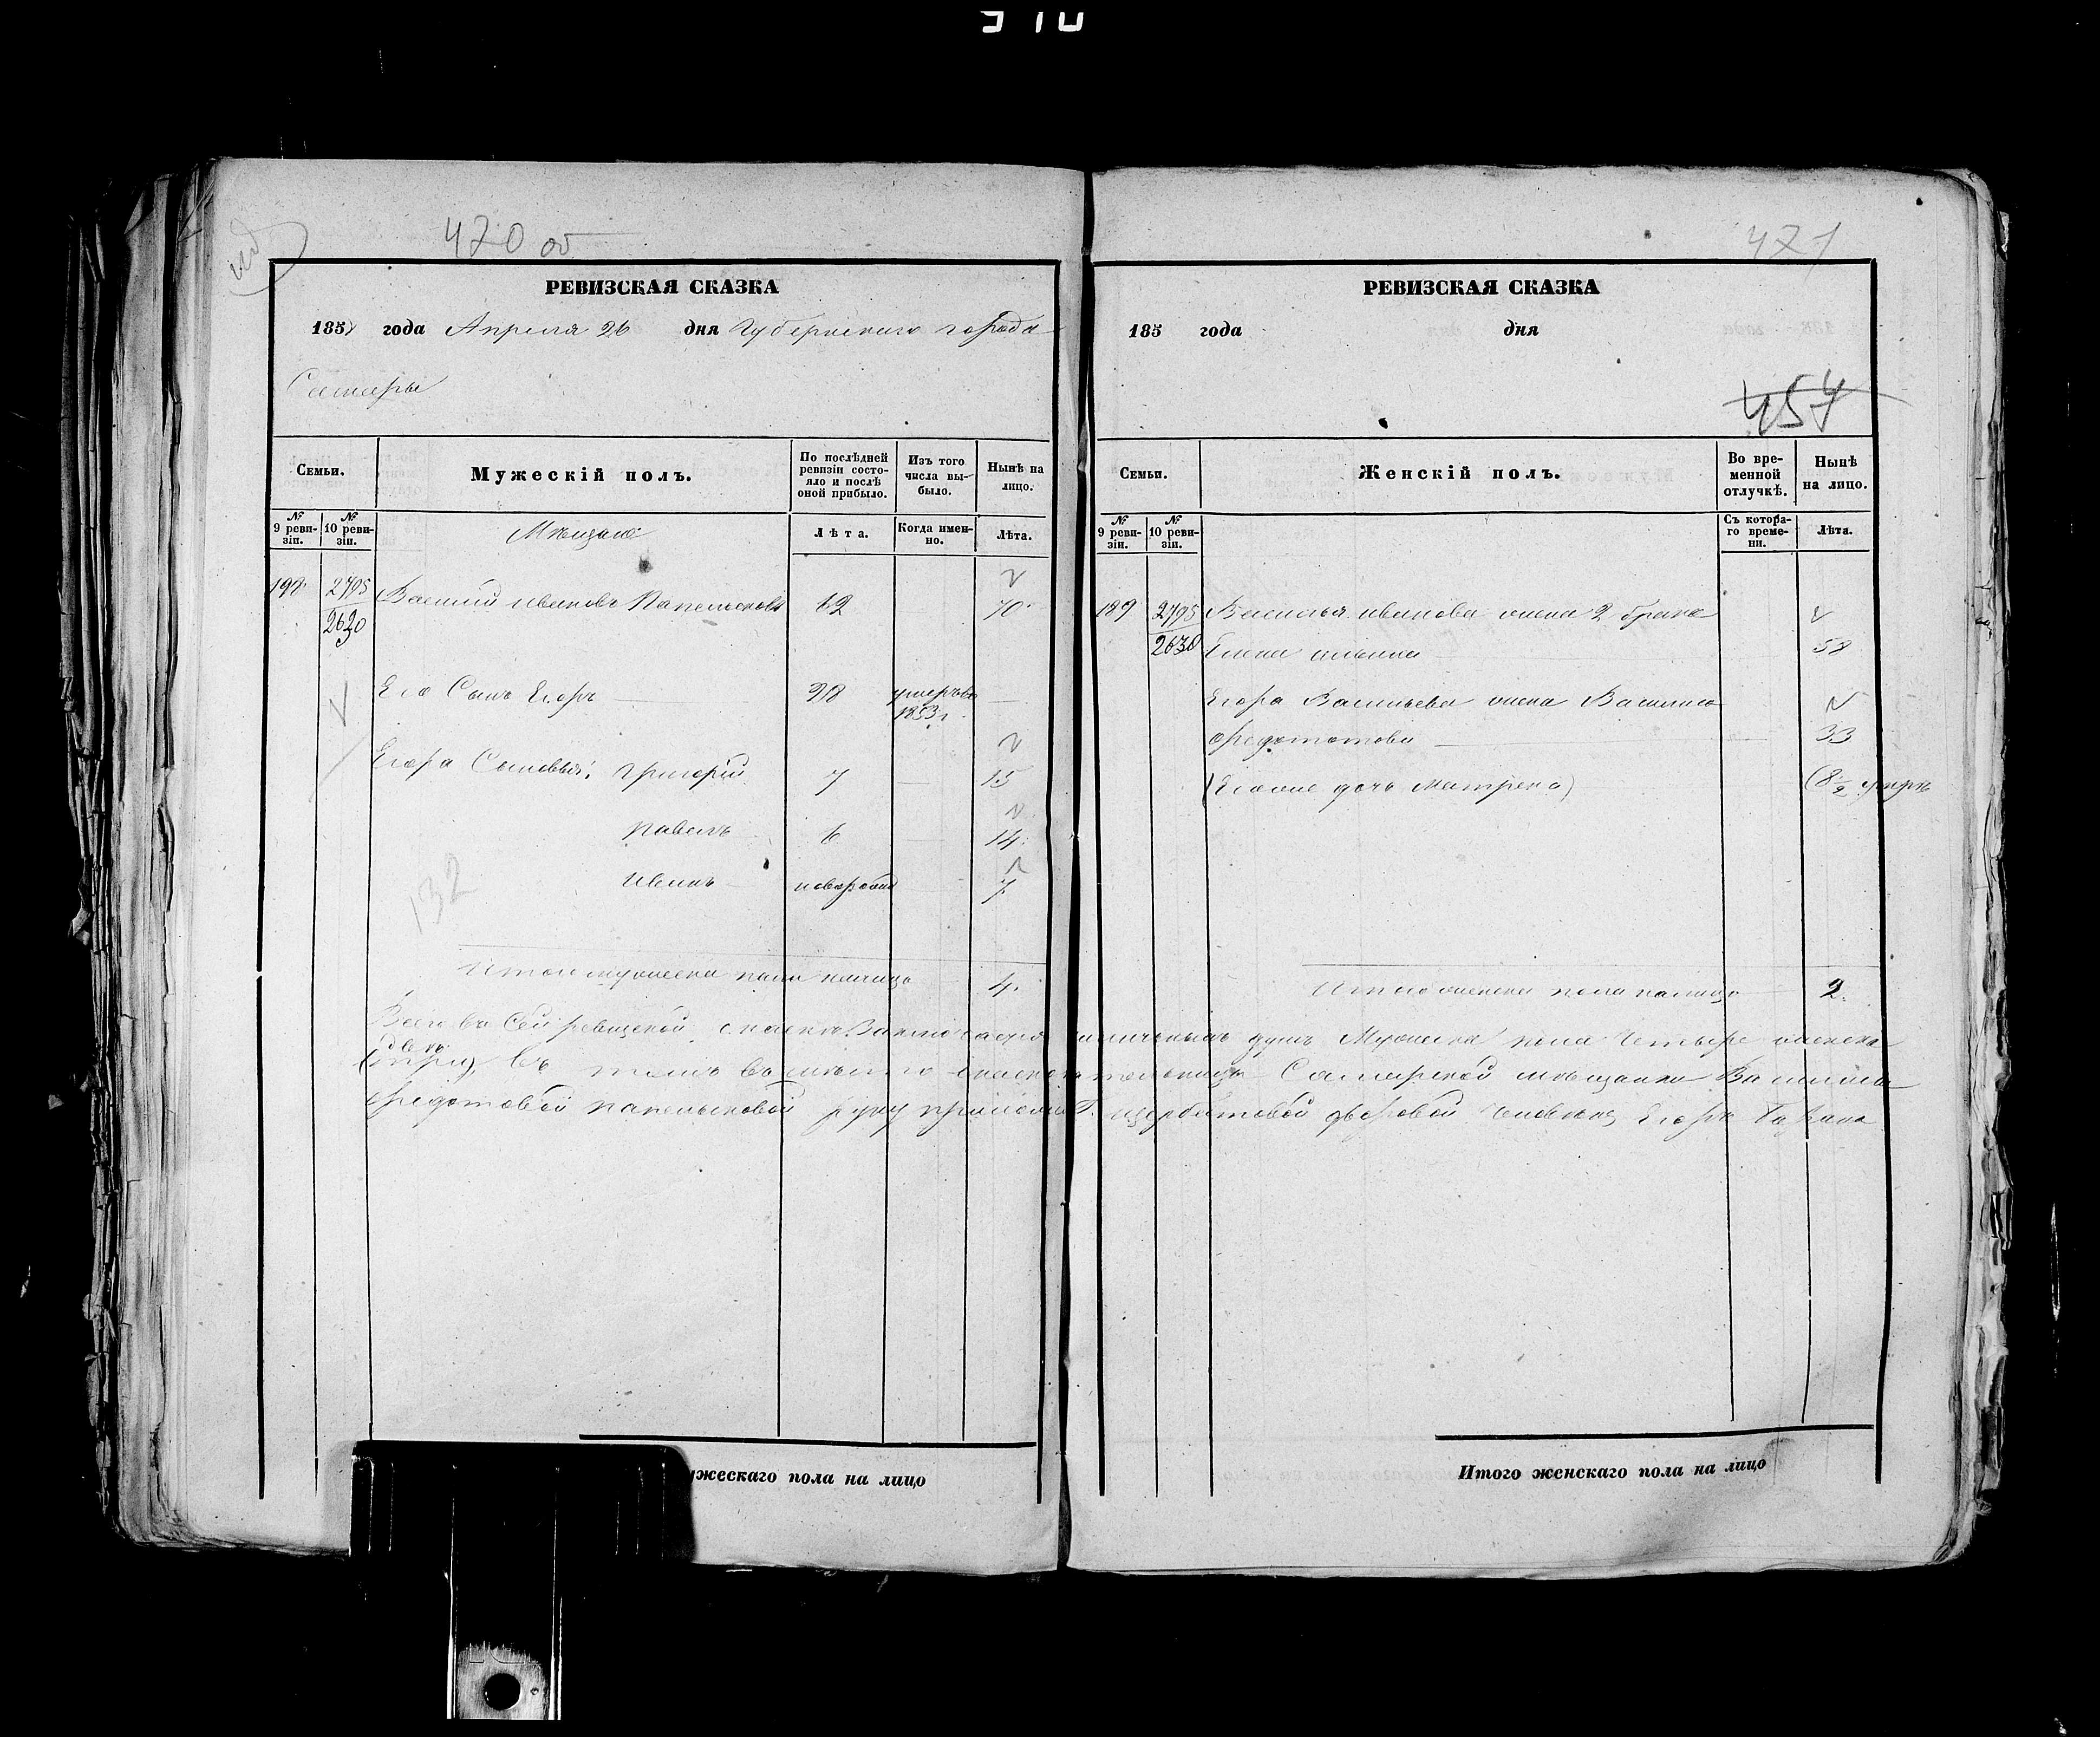 470 об
РЕВИЗСКАЯ СКАЗКА
1857 года Апреля 26 дня Губернскаго города
Самары
Семьи.
Мужескій полъ.
По послѣдней ревизіи состо-
яло и послѣ
оной прибыло.
Изъ того
числа вы-
было.
Нынѣ на
лицо.
№ 9 реви-
зіи.
№ 10 реви-
зіи.
Мѣщане
Лѣта.
Когда имен-
но.
Лѣта.
198 2795 Василий Иванов 62 70
2630
Его Сынъ Егоръ 28 умеръ въ
1853 г.
Егора Сыновья: Григорій 7 15
Павелъ 6 14
Иванъ новорожд 7
132
Итого мужеска пола налицо 4.
471
РЕВИЗСКАЯ СКАЗКА
185 года дня
457
Семьи.
Женскій полъ.
Во вре-
менной
отлучкѣ.
Нынѣ
на лицо.
№ 9 реви-
зіи.
№ 10 реви-
зіи.
Съ котора-
го време-
ни.
Лѣта.
2795 Василья Иванова жена 2 брака
2630 Елена 58
Егора Васильева жена Василиса
Федотова 33
(Его же дочь Матрена) (8 1/2
Итого женска пола налицо 2.
Всего въ Сей ревизской сказке Заключается наличныхъ душъ Мужеска пола Четыре женска
двѣ
(три), въ томъ вместо Самарской мещанки Василисы
Федотовой руку приложилъ дворовой человекъ Егоръ
ужескаго пола на лицо
Итого женскаго пола на лицо